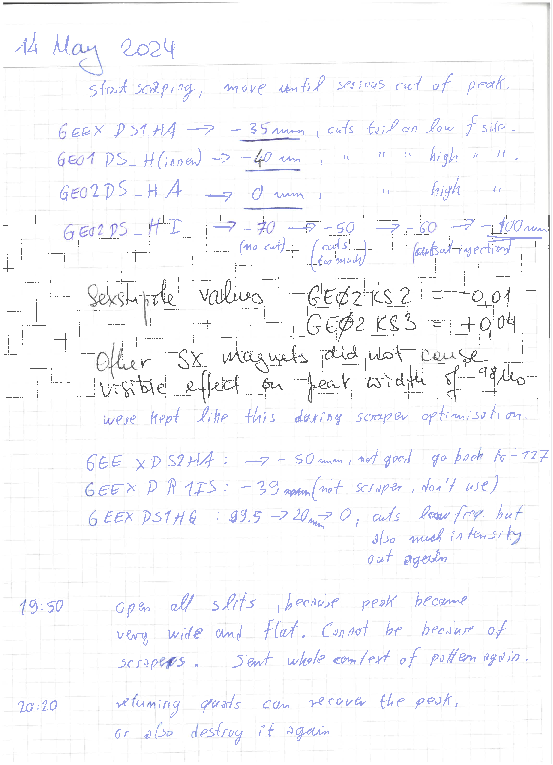 14 May 2024
start scraping, move until serious cut of peak.
GEEX DS1HA → -35 mm, cuts tail on low f side.
GE01 DS_H(inner) → -40 mm, " " " high " ".
GE02DS_HA → 0 mm, " " high "
GE02DS_HI → -70 → -50 → -60 → -100 mm
(no cut) (cuts too much) (cuts at injection)
Sextupole values GEØ2KS2 = -0,01
GEØ2KS3 = +0,04
Other SX magnets did not cause
visible effect on peak width of 98Mo
were kept like this during scraper optimisation
GEEXDS2HA : → -50 mm, not good go back to -127
GEEXDR1IS : -39 mm (not scraper, don't use)
GEEXDS1HG : 99.5 → 20 mm → 0, cuts low freq. but
also much intensity
out again
19:50 open all slits, because peak became
very wide and flat. Cannot be because of
scrapers. Sent whole context of pattern again.
20:20 retuning quads can recover the peak,
or also destroy it again